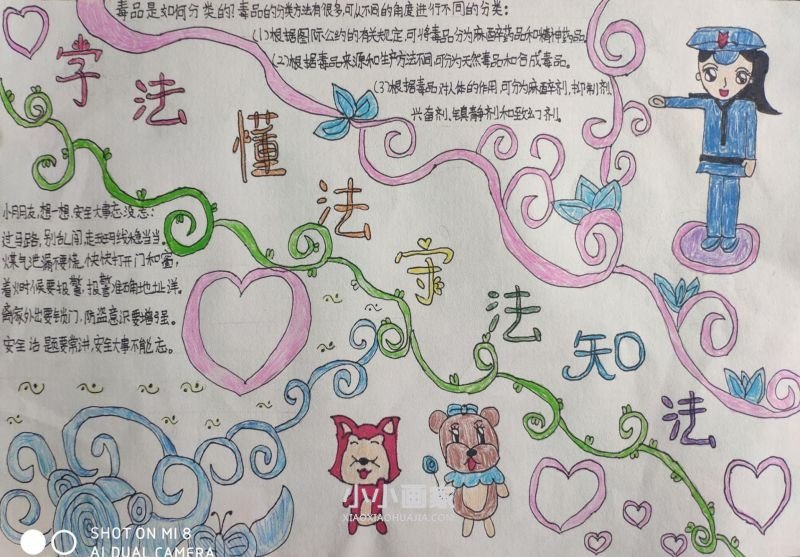 毒品是如何分类的?毒品的分类方法有很多,可从不同的角度进行不同的分类:
(1)根据国际公约的有关规定,可将毒品分为麻醉药品和精神药品。
(2)根据毒品来源和生产方法不同,可分为天然毒品和合成毒品。
(3)根据毒品对人体的作用,可分为麻醉剂,抑制剂,
兴奋剂、镇静剂和致幻剂。
学法懂法守法知法
小朋友,想一想,安全大事忘没忘:
过马路,别乱闯,走斑马线稳当当。
煤气泄漏不要慌,快快打开门和窗,
着火时候要报警,报警准确地址详。
离家外出要锁门,防盗意识要增强。
安全话题要常讲,安全大事不能忘。
小小画家
XIAOXIAOHUAJIA.COM
SHOT ON MI 8
AI DUAL CAMERA